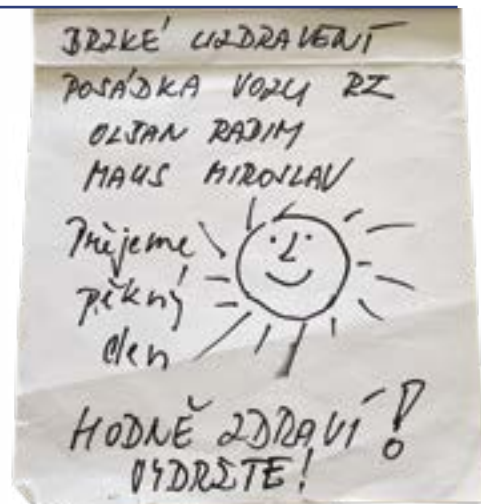 BRZKÉ UZDRAVENÍ
POSÁDKA VOZU RZ
OLJAN RADIM
MAUS MIROSLAV
Přejeme
pěkný
den
HODNĚ ZDRAVÍ!
VYDRŽTE!